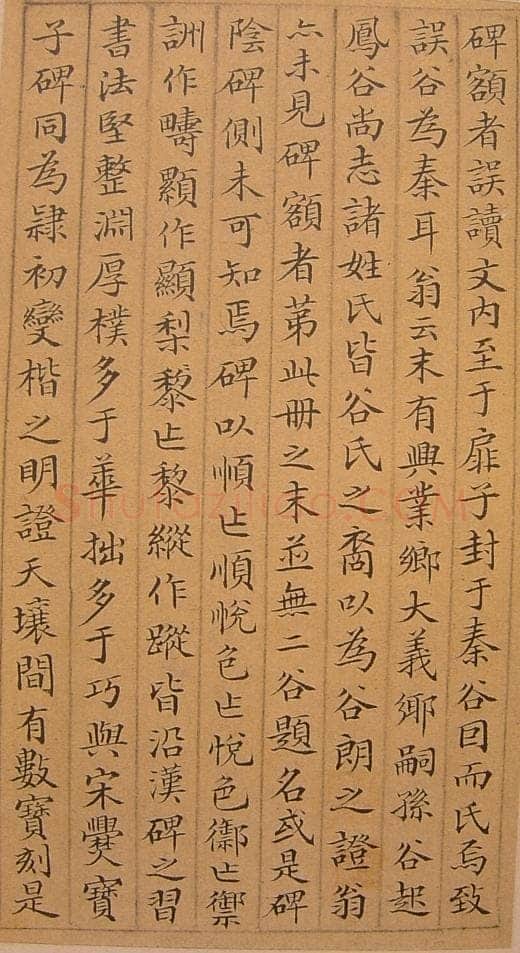 碑額者誤讀文内至于扉子封于秦谷因而氏焉致
誤谷為秦耳翁云末有興業鄉大義鄉嗣孫谷起
鳳谷尚志諸姓氏皆谷氏之裔以為谷朗之證翁
亦未見碑額者苐此冊之末並無二谷題名或是碑
陰碑側未可知焉碑以順㠯順悅色㠯悅色禦㠯禦
詶作疇顯作顯梨黎㠯黎縱作蹤皆沿漢碑之習
書法堅整淵厚樸多于華拙多于巧與宋爨寶
子碑同為隸初變楷之明證天壤間有數寶刻是